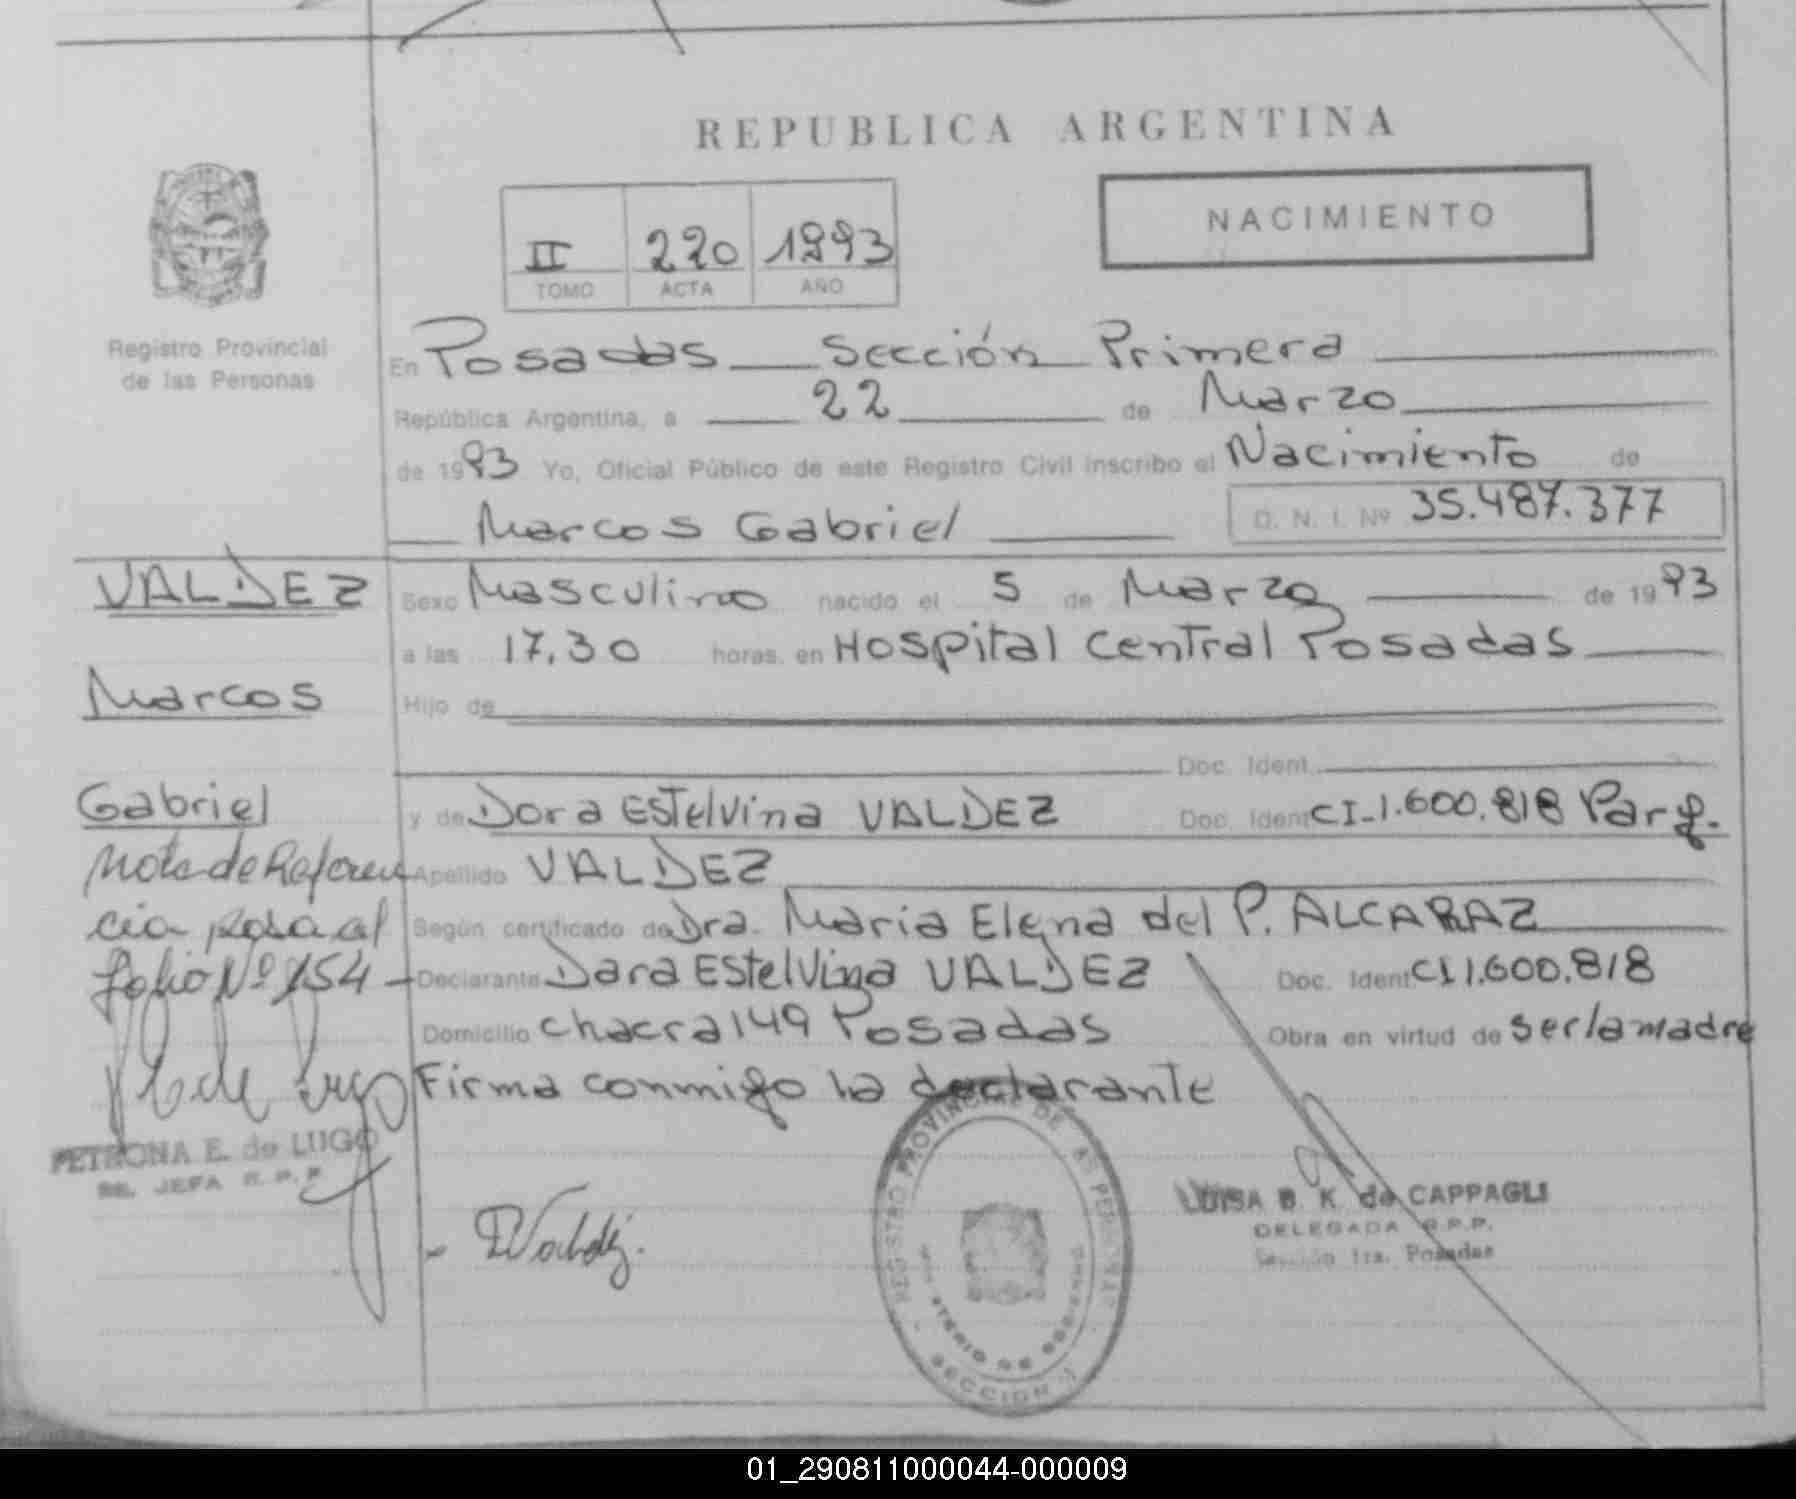 REPUBLICA ARGENTINA
NACIMIENTO
II 220 1993
TOMO ACTA AÑO
Registro Provincial
de las Personas
En Posadas Sección Primera
República Argentina, a 22 de Marzo
de 1993 Yo, Oficial Público de este Registro Civil inscribo el Nacimiento de
Marcos Gabriel D. N. I. Nº 35.487.377
VALDEZ
Sexo Masculino nacido el 5 de Marzo de 1993
a las 17,30 horas, en Hospital Central Posadas
Marcos
Hijo de
Doc. Ident.
Gabriel
y de Dora Estelvina VALDEZ Doc. Ident CI-1.600.818 Parg.
Nota de Referen
cia pasa al
folio Nº 154
Apellido VALDEZ
Según certificado de Dra. Maria Elena del P. ALCARAZ
Declarante Dora Estelvina VALDEZ Doc. Ident CI 1.600.818
Domicilio chacra 149 Posadas Obra en virtud de ser la madre
Firma conmigo la declarante
PETRONA E. de LUGO
JEFA R.P.P.
DValdéz.
REGISTRO PROVINCIAL DE LAS PERSONAS
MINISTERIO DE GOBIERNO
SECCION 1
LUISA B. K. de CAPPAGLI
DELEGADA R.P.P.
Sección 1ra. Posadas
01_290811000044-000009